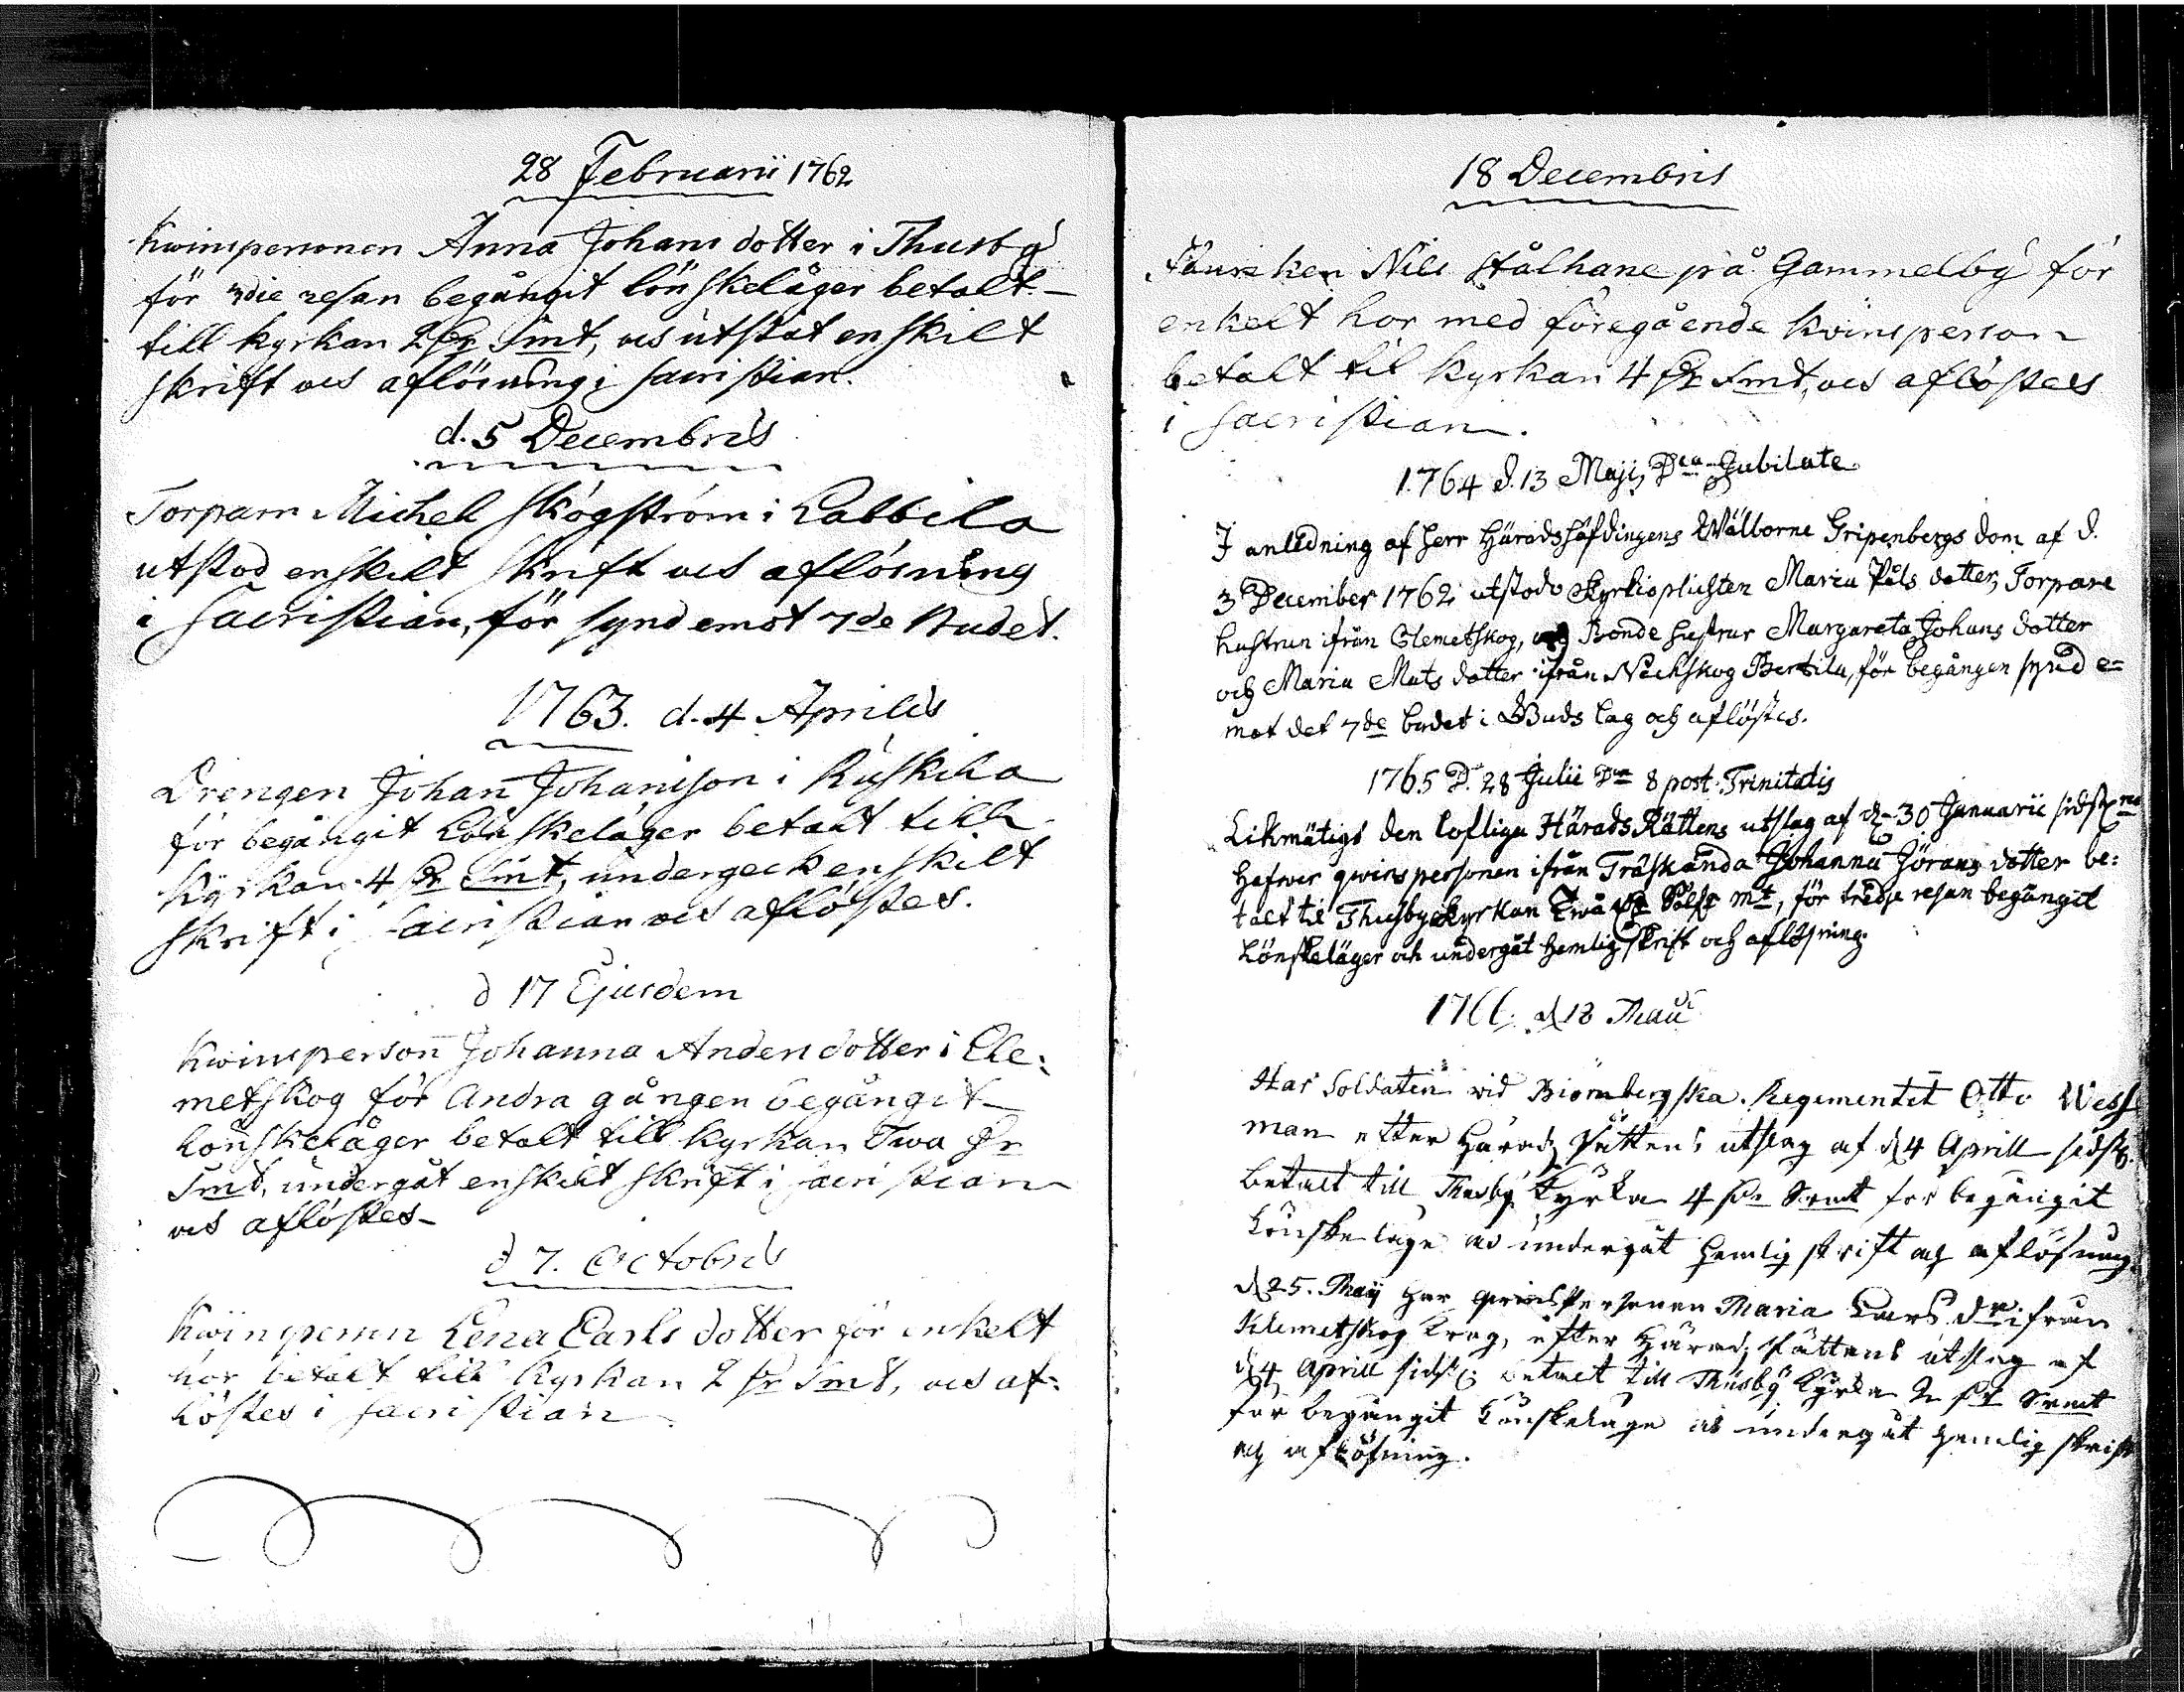 28 Februarii 1762
Kwinspersonen Anna Johans dotter i Thusby
för 3die resan begångit lönskeläger betalt
till kyrkan 2 Dr Smt, ock utstått enskilt
skrift ock aflösning i sacristian.
d. 5 Decembris
Torparn Michel Skogström i Labbila
utstod enskilt skrift ock aflösning
i sacristian, för synd emot 7de Budet.
1763. d. 4 Aprilis
Drengen Johan Johansson i Ruskila
för begångit Lönskeläger betalt till
kyrkan 4 Dr Smt, undergeck enskilt
skrift i sacristian ock aflöstes.
d 17 Ejusdem
Kwinsperson Johanna Anders dotter i Cle:
metskog för Andra gången begångit
Lönskeläger betalt till kyrkan Twa Dr
Smt, undergåt enskilt skrift i sacristian
ock aflöstes
d 7. Octobris
Kwinspersn Lena Carls dotter för enkelt
hor betalt till kyrkan 2 Dr Smt, ock af:
löstes i sacristian
18 Decembris
Nils Stålhane på Gammelby för
enkelt hor med föregående kwinsperson
betalt til kyrkan 4 Dr Smt, ock aflöstes
i sacristian.
1764 d. 13 Maji, Dca Jubilate
I anledning af Herr Häradshöfdingens Wälborne Gripenbergs dom af d.
3 December 1762 utstodo Kyrkioplichten Maria Påls dotter, Torpare
hustrun ifrån Clemetskog, Bonde hustrur Margareta Johans dotter
och Maria Mats dotter ifrån Näckskog Bertila, för begången synd e=
mot det 7de budet i Guds Lag och aflöstes.
1765 D. 28 Julii Dca 8 post Trinitatis
Likmätigt den loflige Härads Rättens utslag af d 30 Januarii sidst
Hafwer qwinspersonen ifrån Träskända Johanna Jörans dotter be:
talt til Thusby Kyrkan Twå Dr Sölfr mt, för tredje resan begångit
Lönskeläger och undergåt hemlig skrift och aflösning.
1766. d 18 Maii
Har Soldaten wid Biörneborgska Regimentet Otto Wess
man efter Härads Rättens utslag af d 4 Aprill sidstl.
betalt till Thusby Kyrka 4 Dr Smt för begångit
Lönskelage ock undergåt hemlig skrift och aflösning.
d 25. Maij har qwinspersonen Maria Lars dr ifrån
Klemetskog Krog, efter Härads Rättens utslag af
d 4 Aprill sidstl. betalt till Thusby Kyrka 2 Dr Smt
för begångit Lönskelage ock undergåt hemlig skrift
och aflösning.